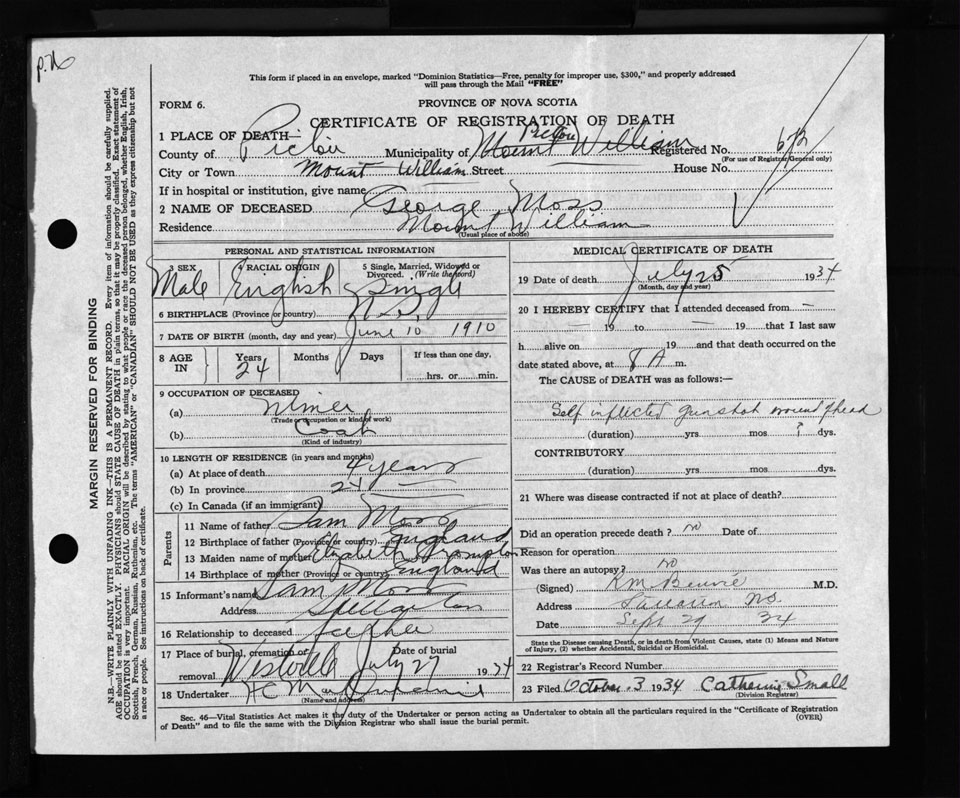 p.76
This form if placed in an envelope, marked "Dominion Statistics—Free, penalty for improper use, $300," and properly addressed
will pass through the Mail "FREE"
FORM 6.
PROVINCE OF NOVA SCOTIA
CERTIFICATE OF REGISTRATION OF DEATH
1 PLACE OF DEATH—
County of Pictou Municipality of Pictou Mount William Registered No. 672
(For use of Registrar General only)
City or Town Mount William Street House No.
If in hospital or institution, give name
2 NAME OF DECEASED George Moss
Residence Mount William
(Usual place of abode)
PERSONAL AND STATISTICAL INFORMATION
3 SEX Male
RACIAL ORIGIN English
5 Single, Married, Widowed or Divorced. (Write the word) Single
6 BIRTHPLACE (Province or country) N.S.
7 DATE OF BIRTH (month, day and year) June 10 1910
8 AGE IN Years 24 Months Days If less than one day, hrs. or min.
9 OCCUPATION OF DECEASED
(a) Miner
(Trade or occupation or kind of work)
(b) Coal
(Kind of industry)
10 LENGTH OF RESIDENCE (in years and months)
(a) At place of death 4 years
(b) In province 24 —
(c) In Canada (if an immigrant)
Parents
11 Name of father Sam Moss
12 Birthplace of father England
13 Maiden name of mother Elizabeth Brompton
14 Birthplace of mother (Province or country) England
15 Informant's name Sam Moss
Address
16 Relationship to deceased
17 Place of burial, cremation or removal Westville Date of burial July 27 1934
18 Undertaker
(Name and address)
MEDICAL CERTIFICATE OF DEATH
19 Date of death July 25 1934
(Month, day and year)
20 I HEREBY CERTIFY that I attended deceased from —
— 19 to — 19 that I last saw
h alive on 19 and that death occurred on the
date stated above, at 8 A m.
The CAUSE of DEATH was as follows:—
Self inflicted gunshot wound of head
(duration) yrs. mos ? dys.
CONTRIBUTORY
(duration) yrs. mos. dys.
21 Where was disease contracted if not at place of death?
Did an operation precede death? no Date of
Reason for operation
Was there an autopsy? no
(Signed) M.D.
Address N.S.
Date Sept 29 34
State the Disease causing Death, or in death from Violent Causes, state (1) Means and Nature
of Injury, (2) whether Accidental, Suicidal or Homicidal.
22 Registrar's Record Number
23 Filed October 3 1934 Catherine Small
(Division Registrar)
Sec. 46—Vital Statistics Act makes it the duty of the Undertaker or person acting as Undertaker to obtain all the particulars required in the "Certificate of Registration
of Death" and to file the same with the Division Registrar who shall issue the burial permit.
(OVER)
MARGIN RESERVED FOR BINDING
N.B.—WRITE PLAINLY WITH UNFADING INK—THIS IS A PERMANENT RECORD. Every item of information should be carefully supplied.
AGE should be stated EXACTLY. PHYSICIANS should STATE CAUSE OF DEATH in plain terms, so that it may be properly classified. Exact statement of
OCCUPATION is very important. RACIAL ORIGIN will be described by stating to what people or race the deceased person belonged, whether English, Irish,
Scottish, French, German, Russian, Ruthenian, etc. The terms "AMERICAN" or "CANADIAN" SHOULD NOT BE USED as they express citizenship but not
a race or people. See instructions on back of certificate.